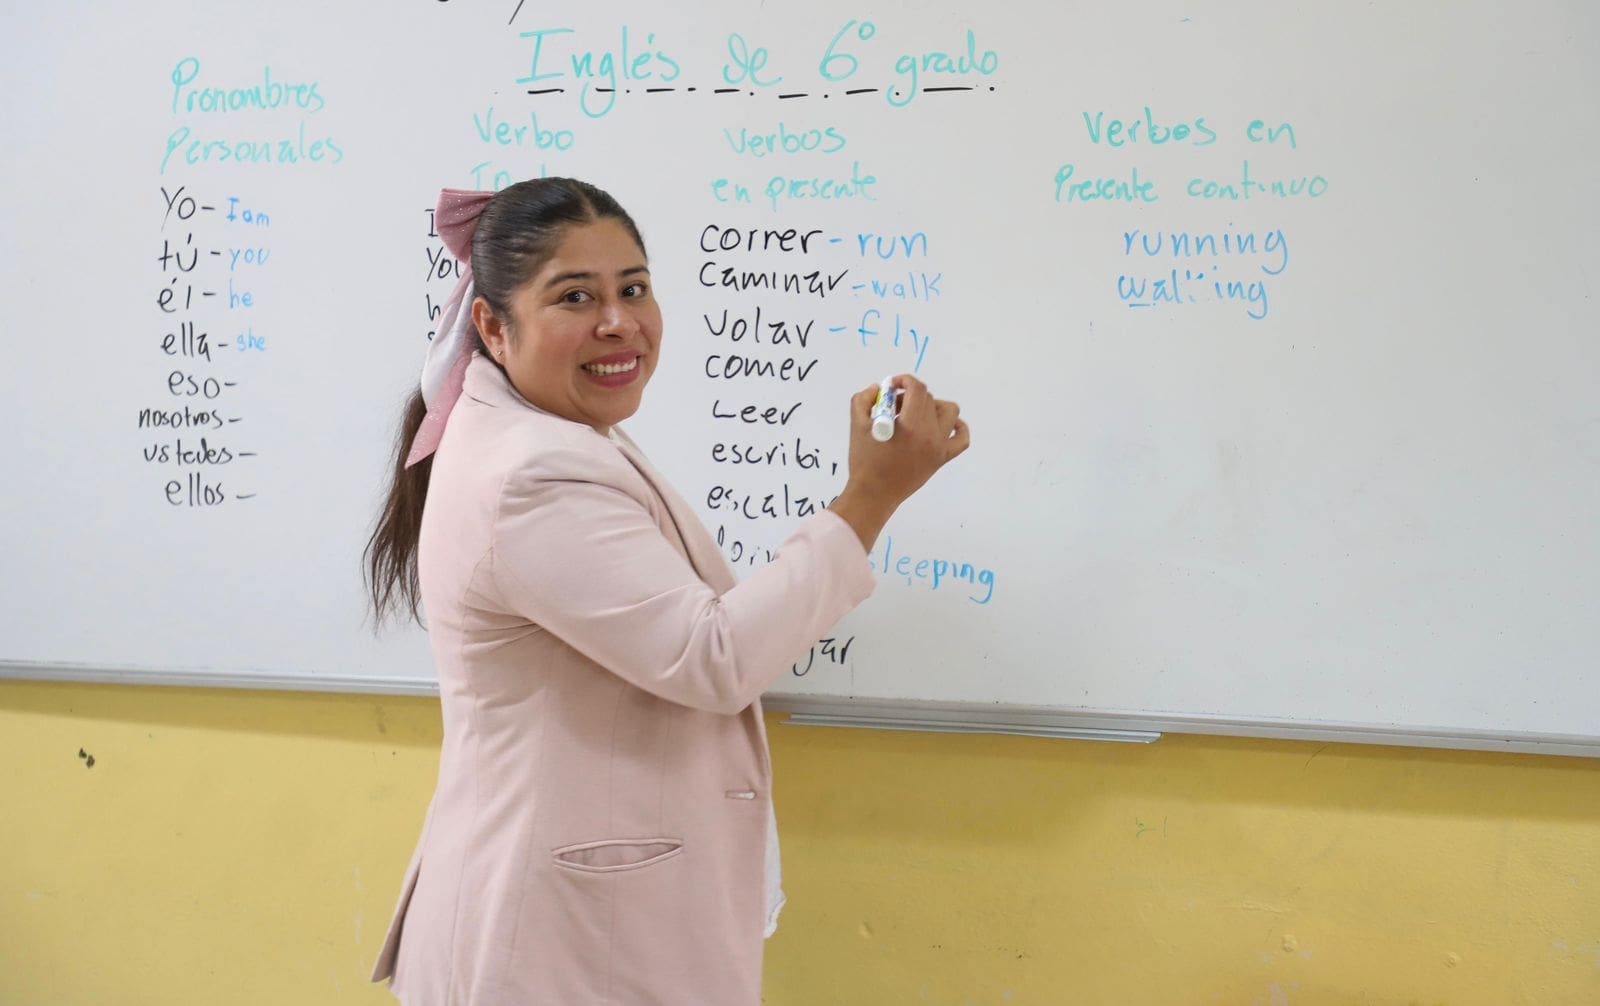 Inglés de 6° grado
Pronombres
Personales
Yo - I am
tú - you
él - he
ella - she
eso -
nosotros -
ustedes -
ellos -
Verbo
Verbos
en presente
correr - run
caminar - walk
volar - fly
comer
Leer
escribi
escalar
sleeping
Verbos en
Presente continuo
running
walking